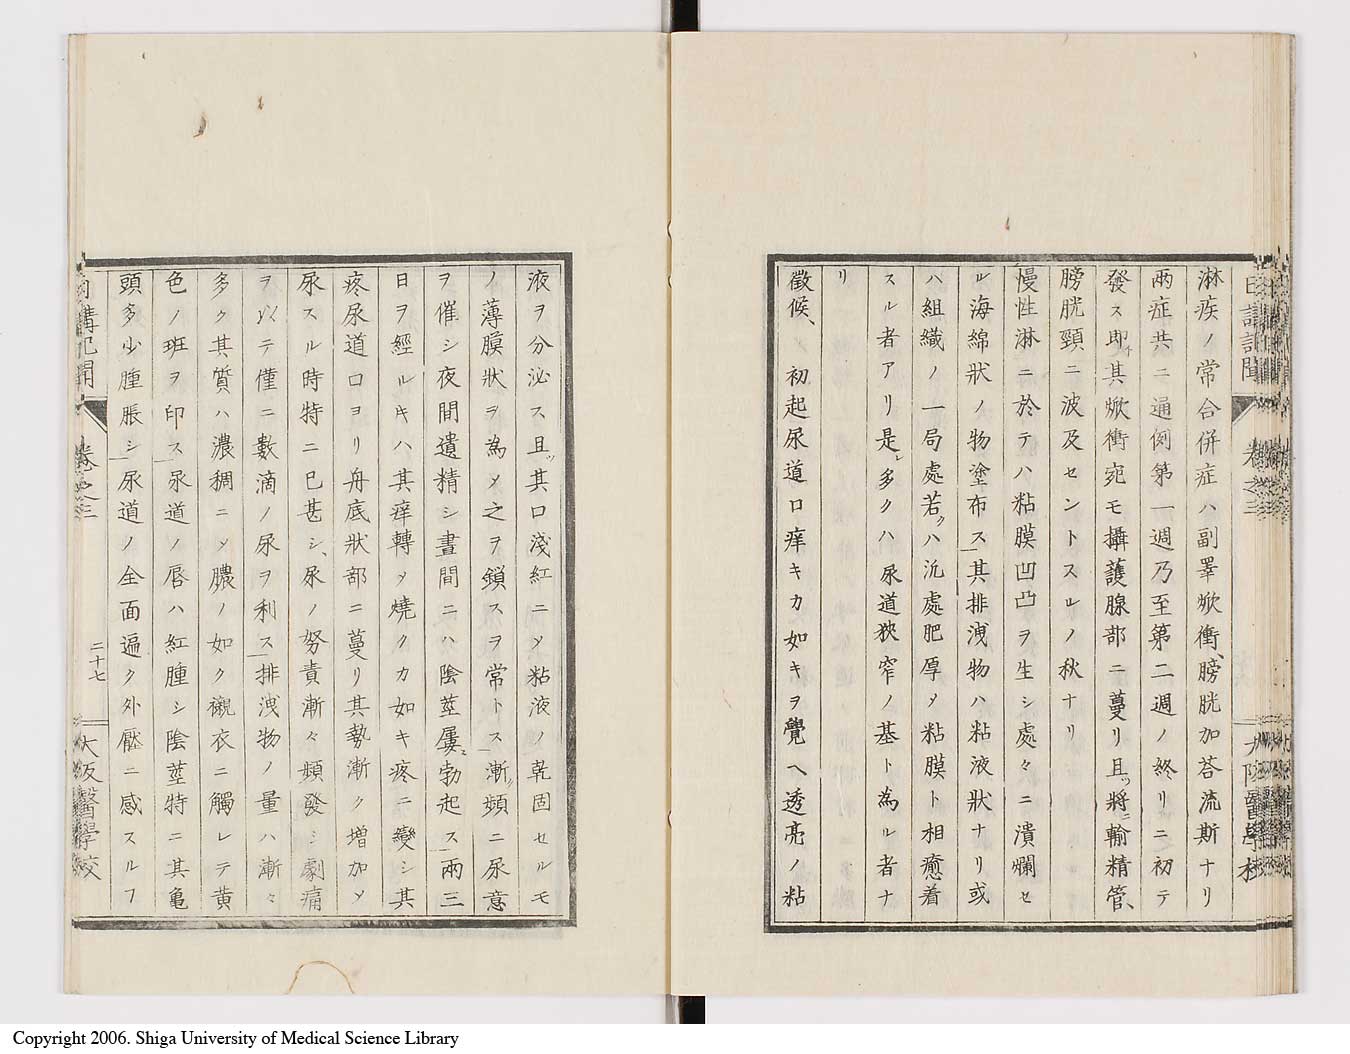 淋疾ノ常合併症ハ副睾焮衝、膀胱加荅流斯ナリ
兩症共ニ通例第一週乃至第二週ノ終リニ初テ
發ス即チ其焮衝宛モ攝護腺部ニ蔓リ且ツ將ニ輸精管、
膀胱頸ニ波及セントスルノ秋ナリ
慢性淋ニ於テハ粘膜凹凸ヲ生シ處々ニ潰爛セ
ル海綿狀ノ物塗布ス其排洩物ハ粘液狀ナリ或
ハ組織ノ一局處若クハ沉處肥厚メ粘膜ト相癒着
スル者アリ是レ多クハ尿道狹窄ノ基ト為ル者ナ
リ
徵候、初起尿道口痒キカ如キヲ覺ヘ透亮ノ粘
液ヲ分泌ス且ツ其口淺紅ニメ粘液ノ乾固セルモ
ノ薄膜狀ヲ為メ之ヲ鎖スヲ常トス漸ク頻ニ尿意
ヲ催シ夜間遺精シ晝間ニハ陰莖屢〻勃起ス兩三
日ヲ經ルキハ其痒轉メ燒クカ如キ疼ニ變シ其
疼尿道口ヨリ舟底狀部ニ蔓リ其勢漸ク增加メ
尿スル時特ニ已甚シ、尿ノ努責漸々頻發シ劇痛
ヲ以テ僅ニ數滴ノ尿ヲ利ス排洩物ノ量ハ漸々
多ク其質ハ濃稠ニメ膿ノ如ク襯衣ニ觸レテ黄
色ノ班ヲ印ス尿道ノ唇ハ紅腫シ陰莖特ニ其亀
頭多少腫脹シ尿道ノ全面遍ク外壓ニ感スルフ
講記聞 卷之三 二十七 大阪醫學校
Copyright 2006. Shiga University of Medical Science Library